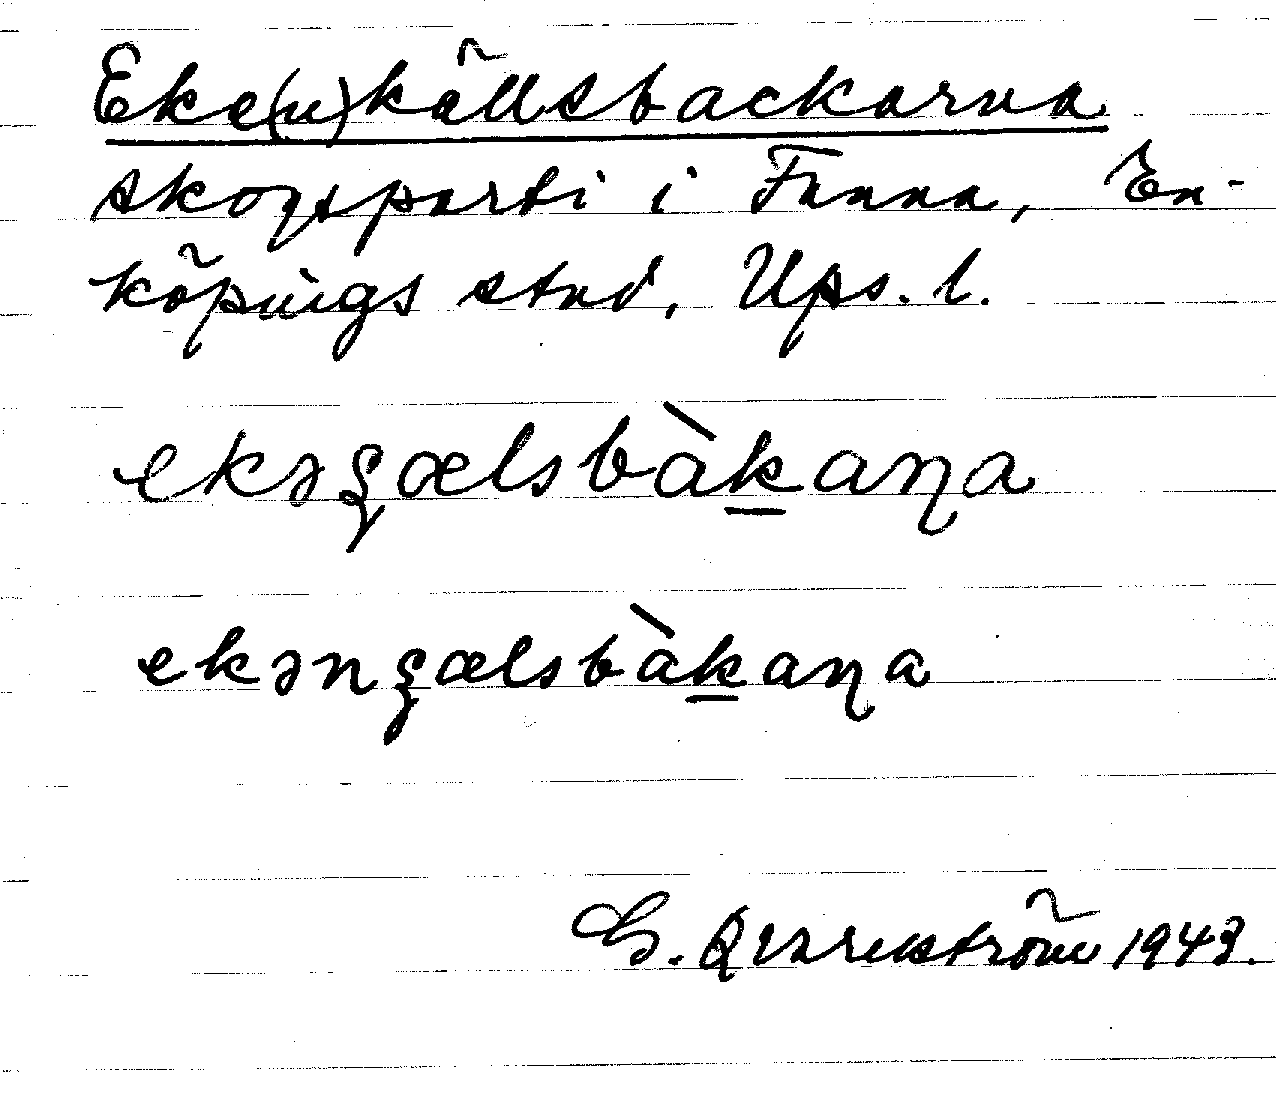 Eke(n)källsbackarna
skogsparti i Fanna, En-
köpings stad, Ups. l.
ekəʂælsbàk̲aɳa
ekənʂælsbàk̲aɳa
G. Qvarnström 1943.